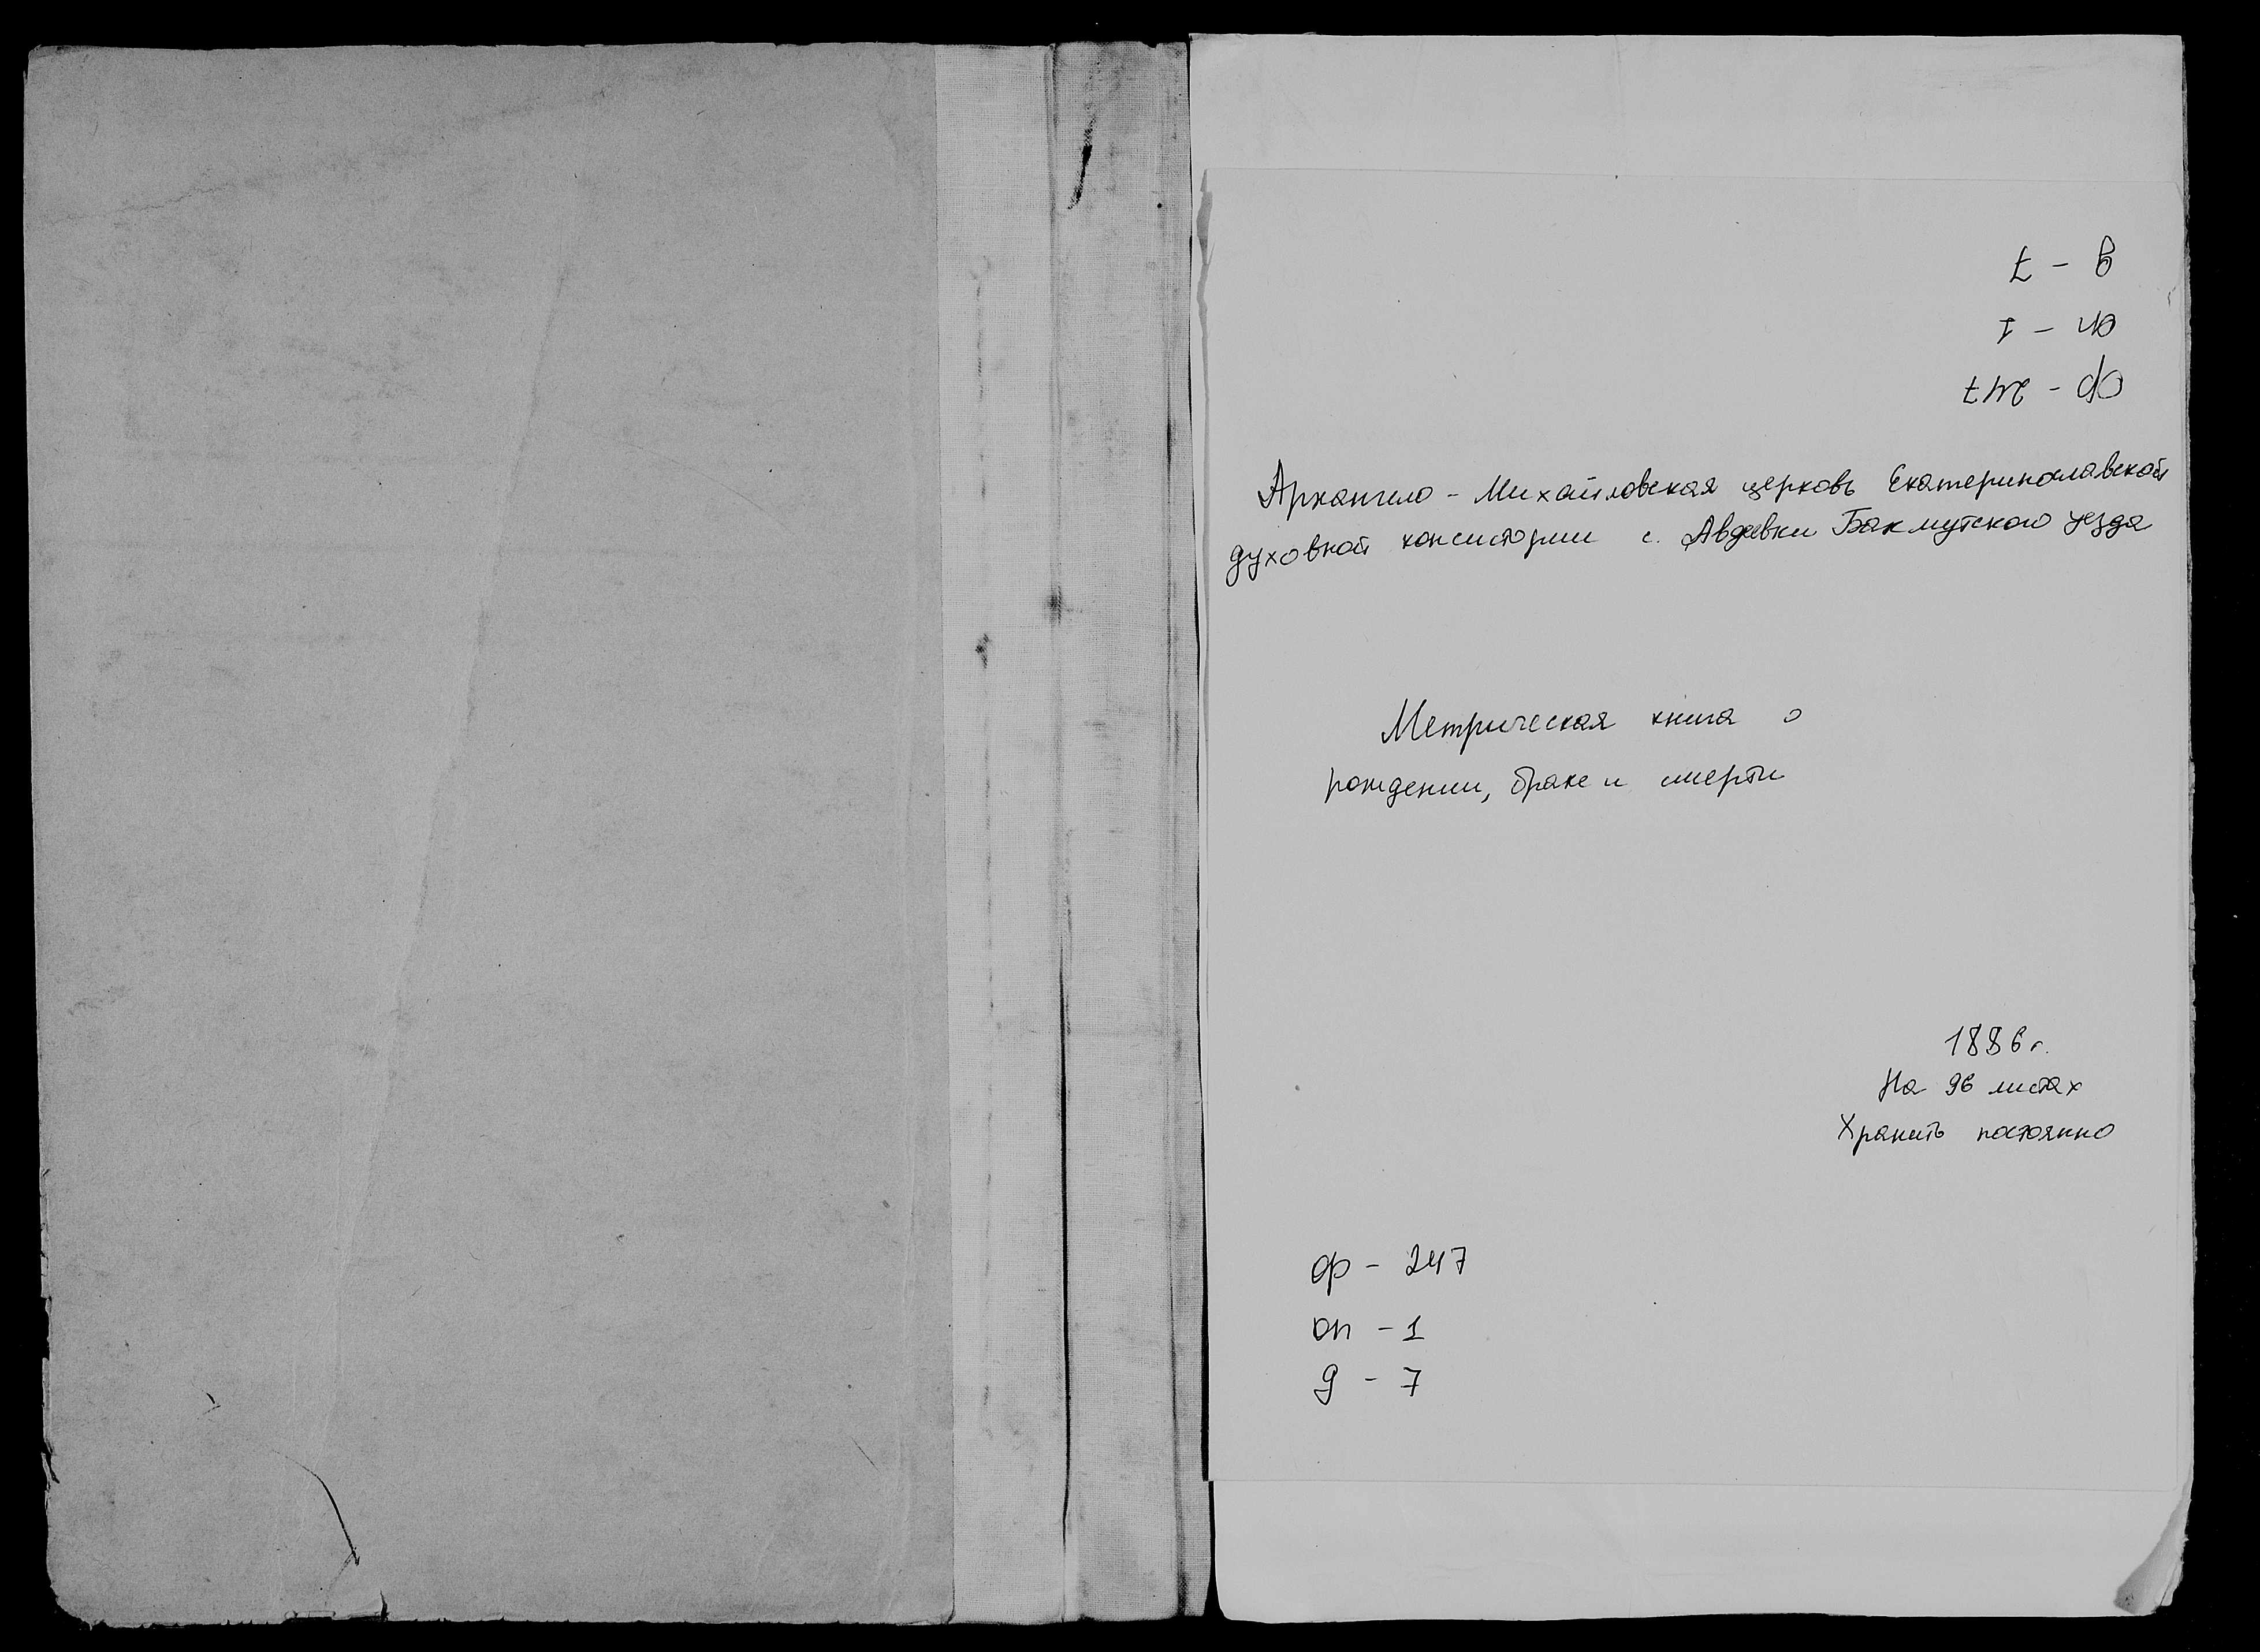 д - 7
оп - 1
ф - 247
Архангело - Михайловская церковь Екатеринославской
духовной консистории с. Авдеевки Бахмутского уезда
Метрическая книга о
рождении, браке и смерти
1886 г.
На 96 листах
Хранить постоянно
ф - 247
оп - 1
д - 7